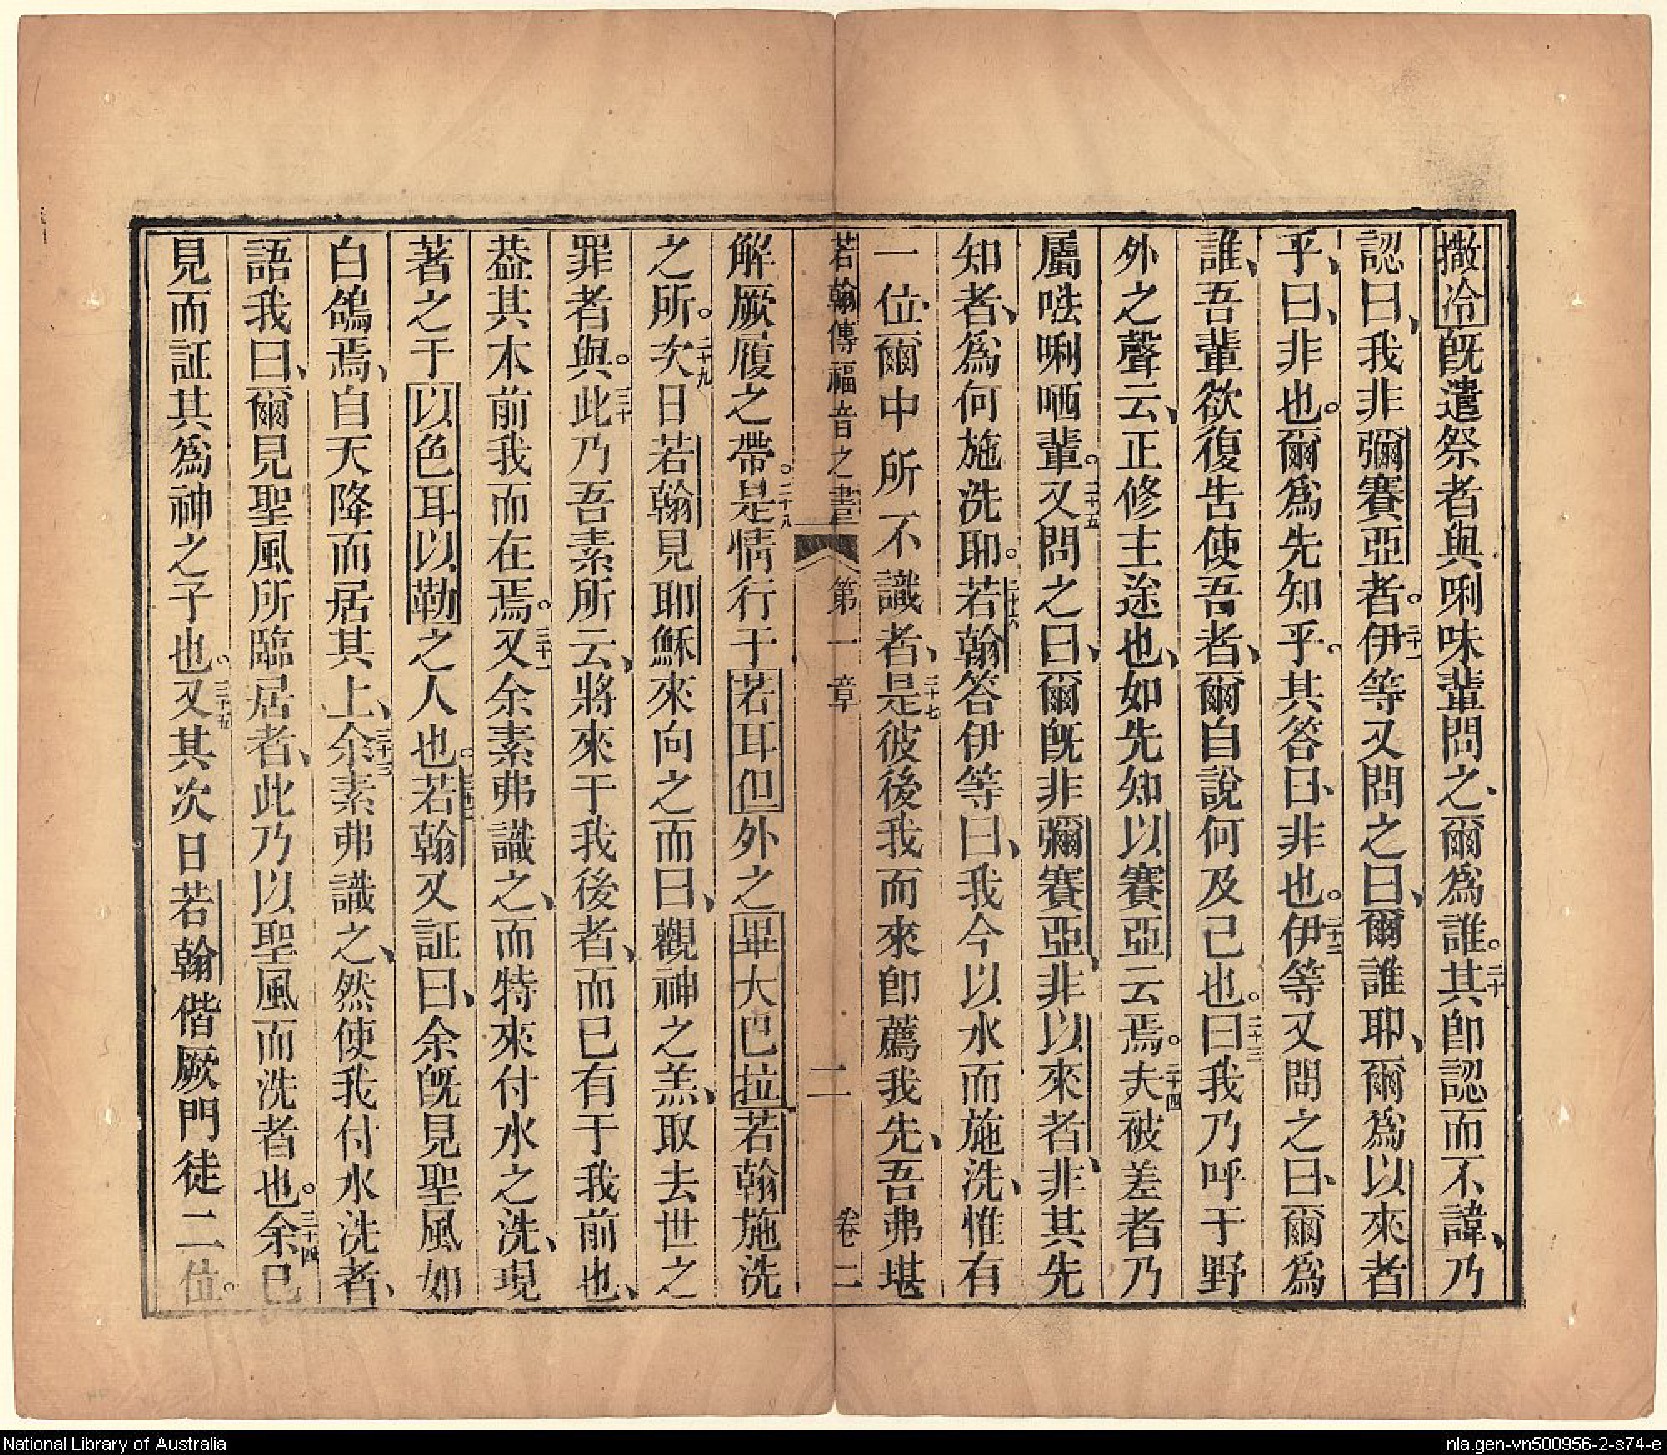 撒冷旣遣祭者與唎味輩問之、爾爲誰。二十其卽認而不諱、乃
認曰、我非彌賽亞者。二十一伊等又問之曰、爾誰耶、爾爲以來者
乎、曰、非也。爾爲先知乎。其答曰、非也。二十二伊等又問之曰、爾爲
誰、吾輩欲復吿使吾者、爾自說何及己也。二十三曰我乃呼于野
外之聲云、正修主途也、如先知以賽亞云焉。二十四夫被差者乃
屬𠵽唎哂輩。二十五又問之曰、爾旣非彌賽亞、非以來者、非其先
知者、爲何施洗耶。二十六若翰答伊等曰、我今以水而施洗、惟有
一位爾中所不識者、二十七是彼後我而來卽薦我先、吾弗堪
若翰傳福音之書 第一章 二 卷二
解厥履之帶。二十八是情行于若耳但外之畢大巴拉若翰施洗
之所。二十九次日若翰見耶穌來向之而曰、觀神之羔、取去世之
罪者與。三十此乃吾素所云、將來于我後者、而已有于我前也、
葢其本前我而在焉。三十一又余素弗識之、而特來付水之洗、現
著之于以色耳以勒之人也。三十二若翰又証曰、余旣見聖風如
白鴿焉、自天降而居其上、三十三余素弗識之、然使我付水洗者、
語我曰、爾見聖風所臨居者、此乃以聖風而洗者也。三十四余已
見而証其爲神之子也。三十五又其次日若翰偕厥門徒二位。
National Library of Australia
nla.gen-vn500956-2-s74-e